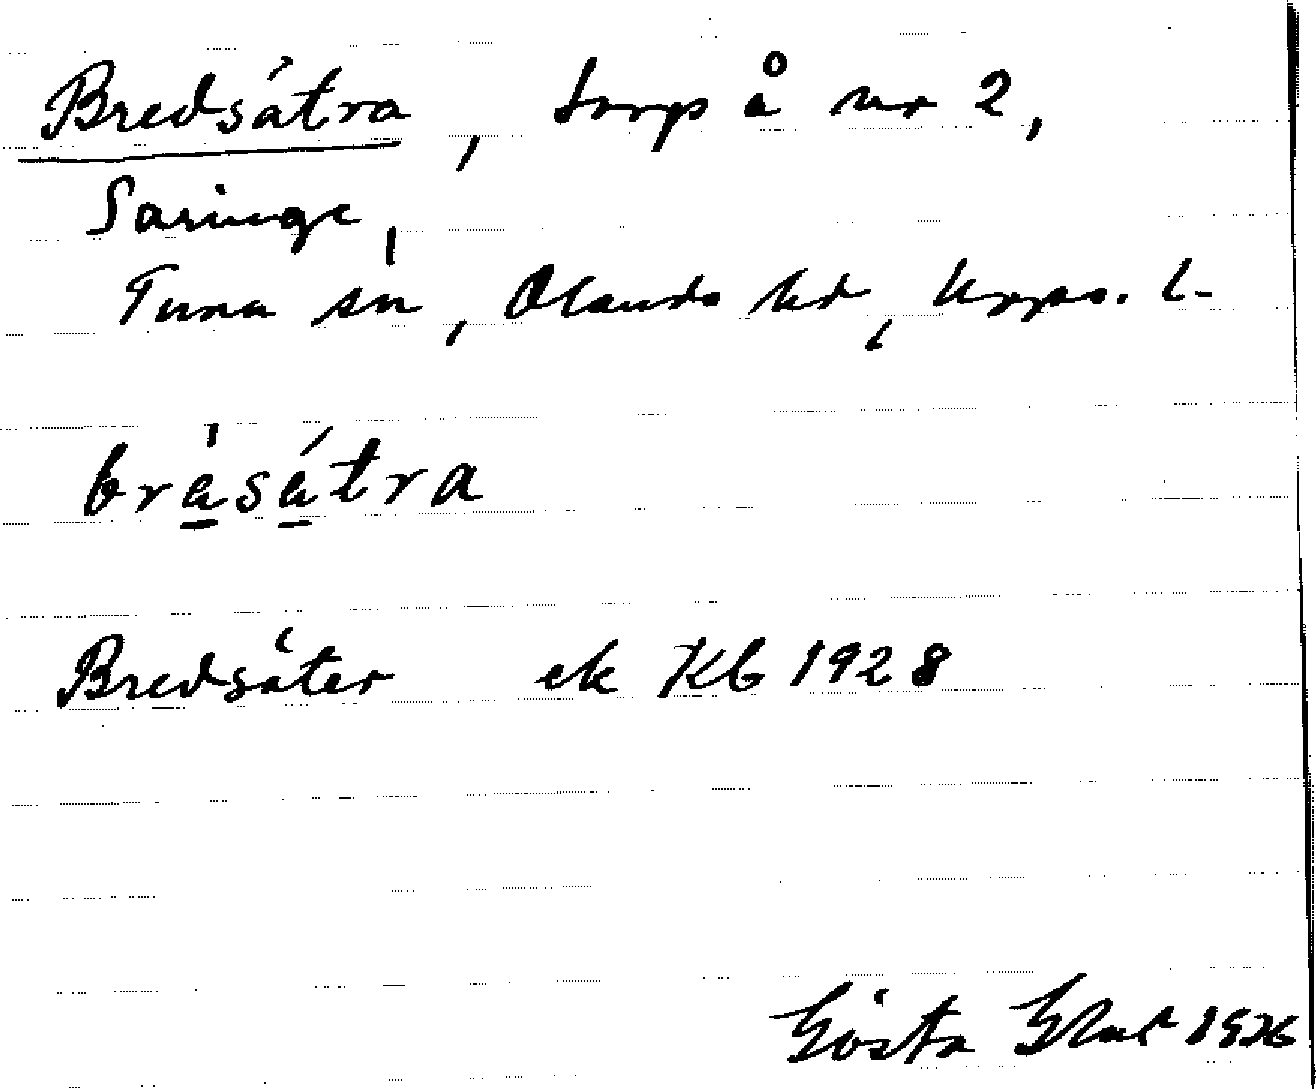 Bredsätra, torp å nr 2,
Saringe,
Tuna sn, Olands hd, Upps. l.
bräsätra
Bredsäter ek Kb 1928
Gösta